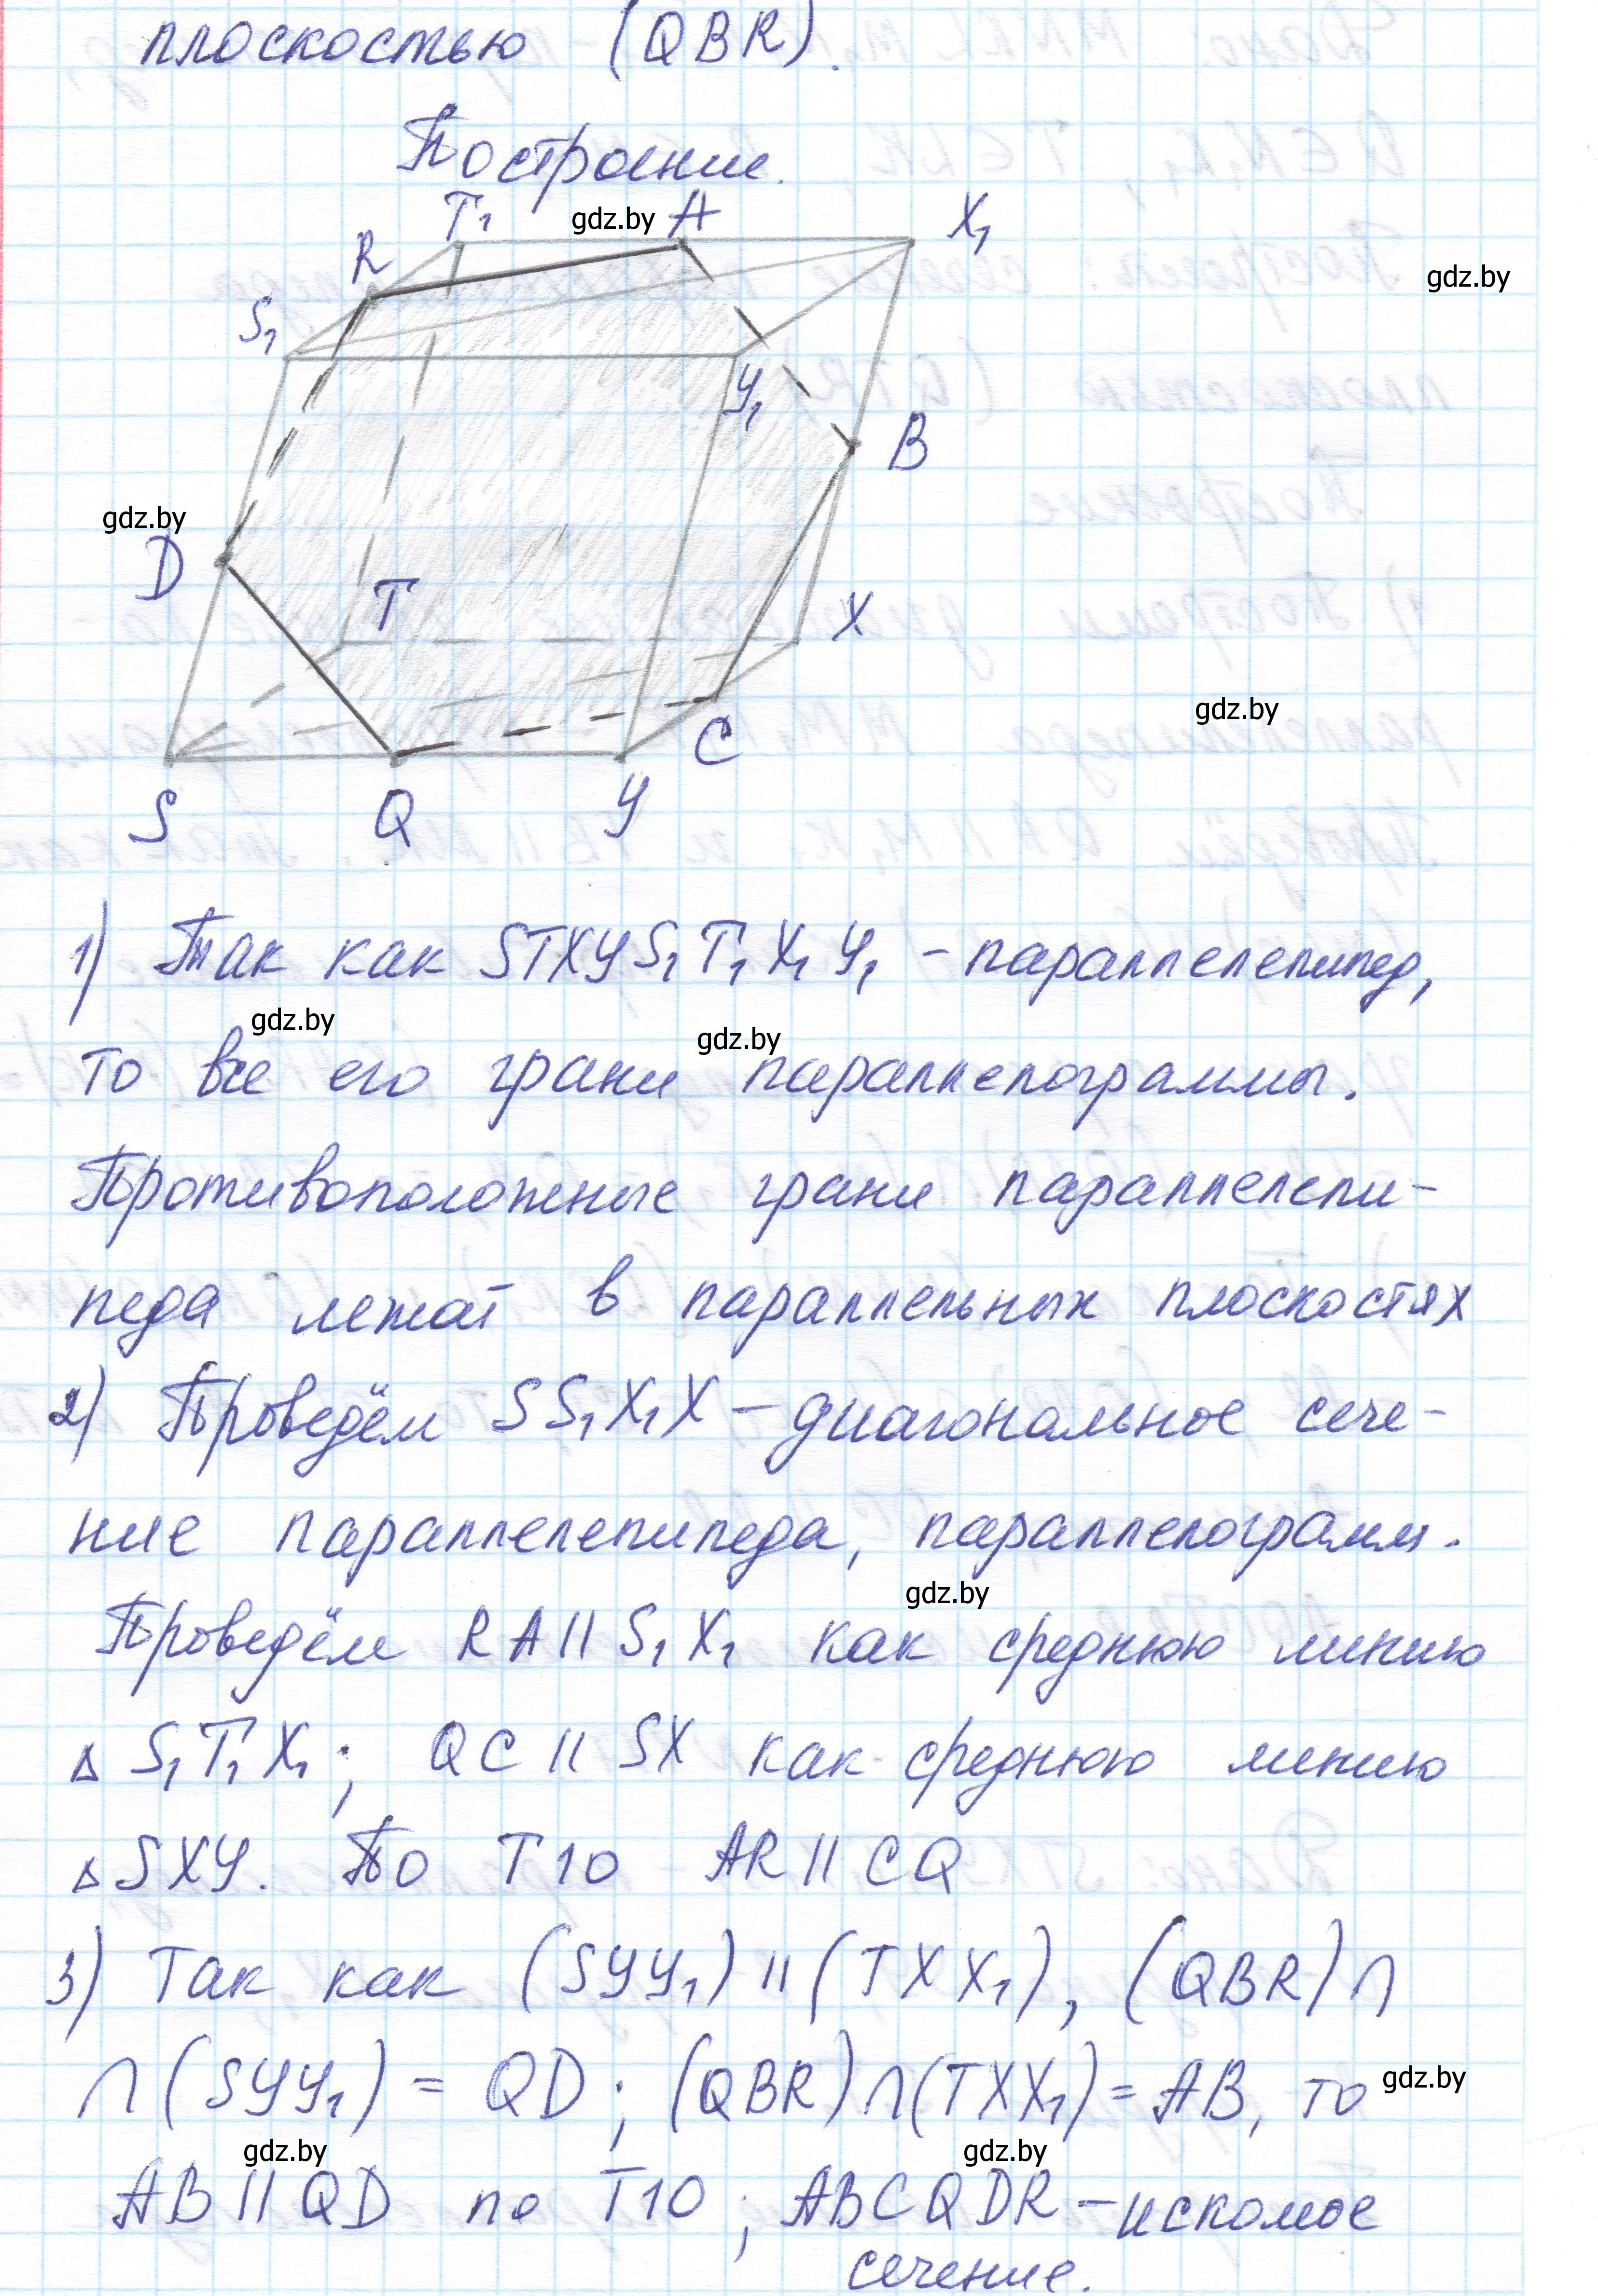 плоскостью (QBR).
Построение.
T₁ gdz.by A X₁
R
gdz.by
S₁
У₁
B
gdz.by
D
T
X
gdz.by
C
S Q У
1) Так как STXУS₁T₁X₁У₁ – параллелепипед,
gdz.by
gdz.by
то все его грани параллелограммы.
Противоположные грани параллелепи-
педа лежат в параллельных плоскостях
2) Проведём SS₁X₁X – диагональное сече-
ние параллелепипеда, параллелограмм.
gdz.by
Проведём RA || S₁X₁ как среднюю линию
Δ S₁T₁X₁; QC || SX как среднюю линию
Δ SXУ. По Т10 AR || CQ
3) Так как (SУУ₁) || (TXX₁), (QBR) ∩
∩ (SУУ₁) = QD; (QBR) ∩ (TXX₁) = AB, то gdz.by
gdz.by gdz.by
AB || QD по Т10; ABCQDR – искомое
сечение.